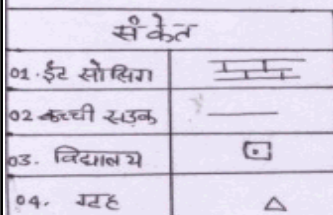 संकेत
01. ईट सोलिंग
02 कच्ची सड़क
03. विद्यालय
04. गृह